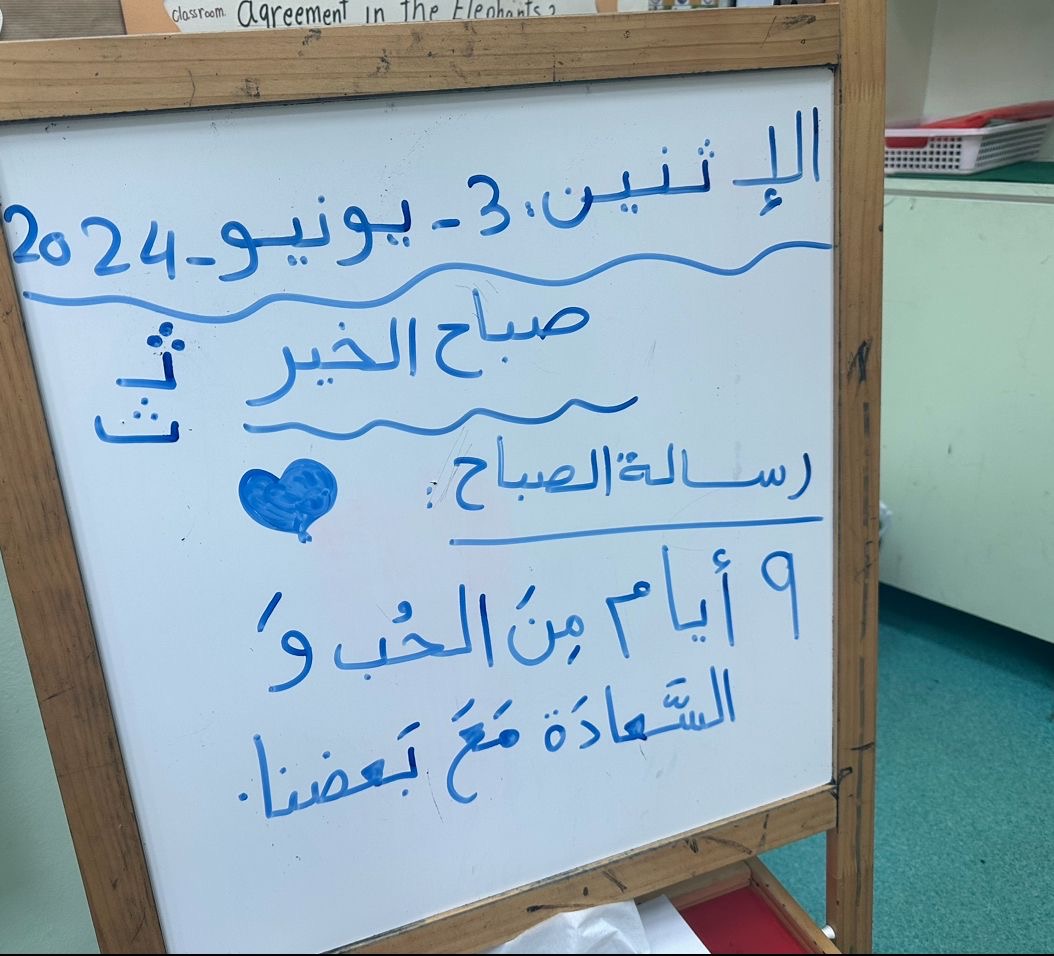 classroom Agreement in the Elephants?
الإثنين، 3 - يونيو - 2024
صباح الخير
ثـ
ث
رسالة الصباح :
٩ أيام مِنَ الحُب وَ
السَّعادَة مَعَ بَعضنا.